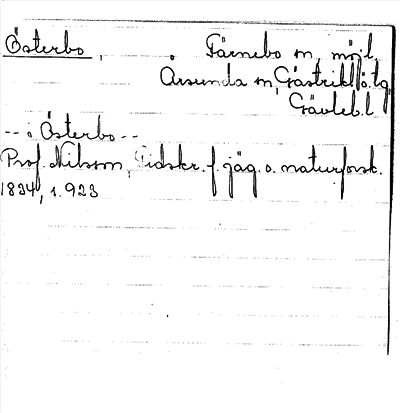 Österbo, Färnebo sn, möjl.
Årsunda sn, Gästrikl. ö. tg
Gävleb. l
-- i Österbo --
Prof. Nilsson, Tidskr. f. jäg. o. naturforsk.
1834, s. 923